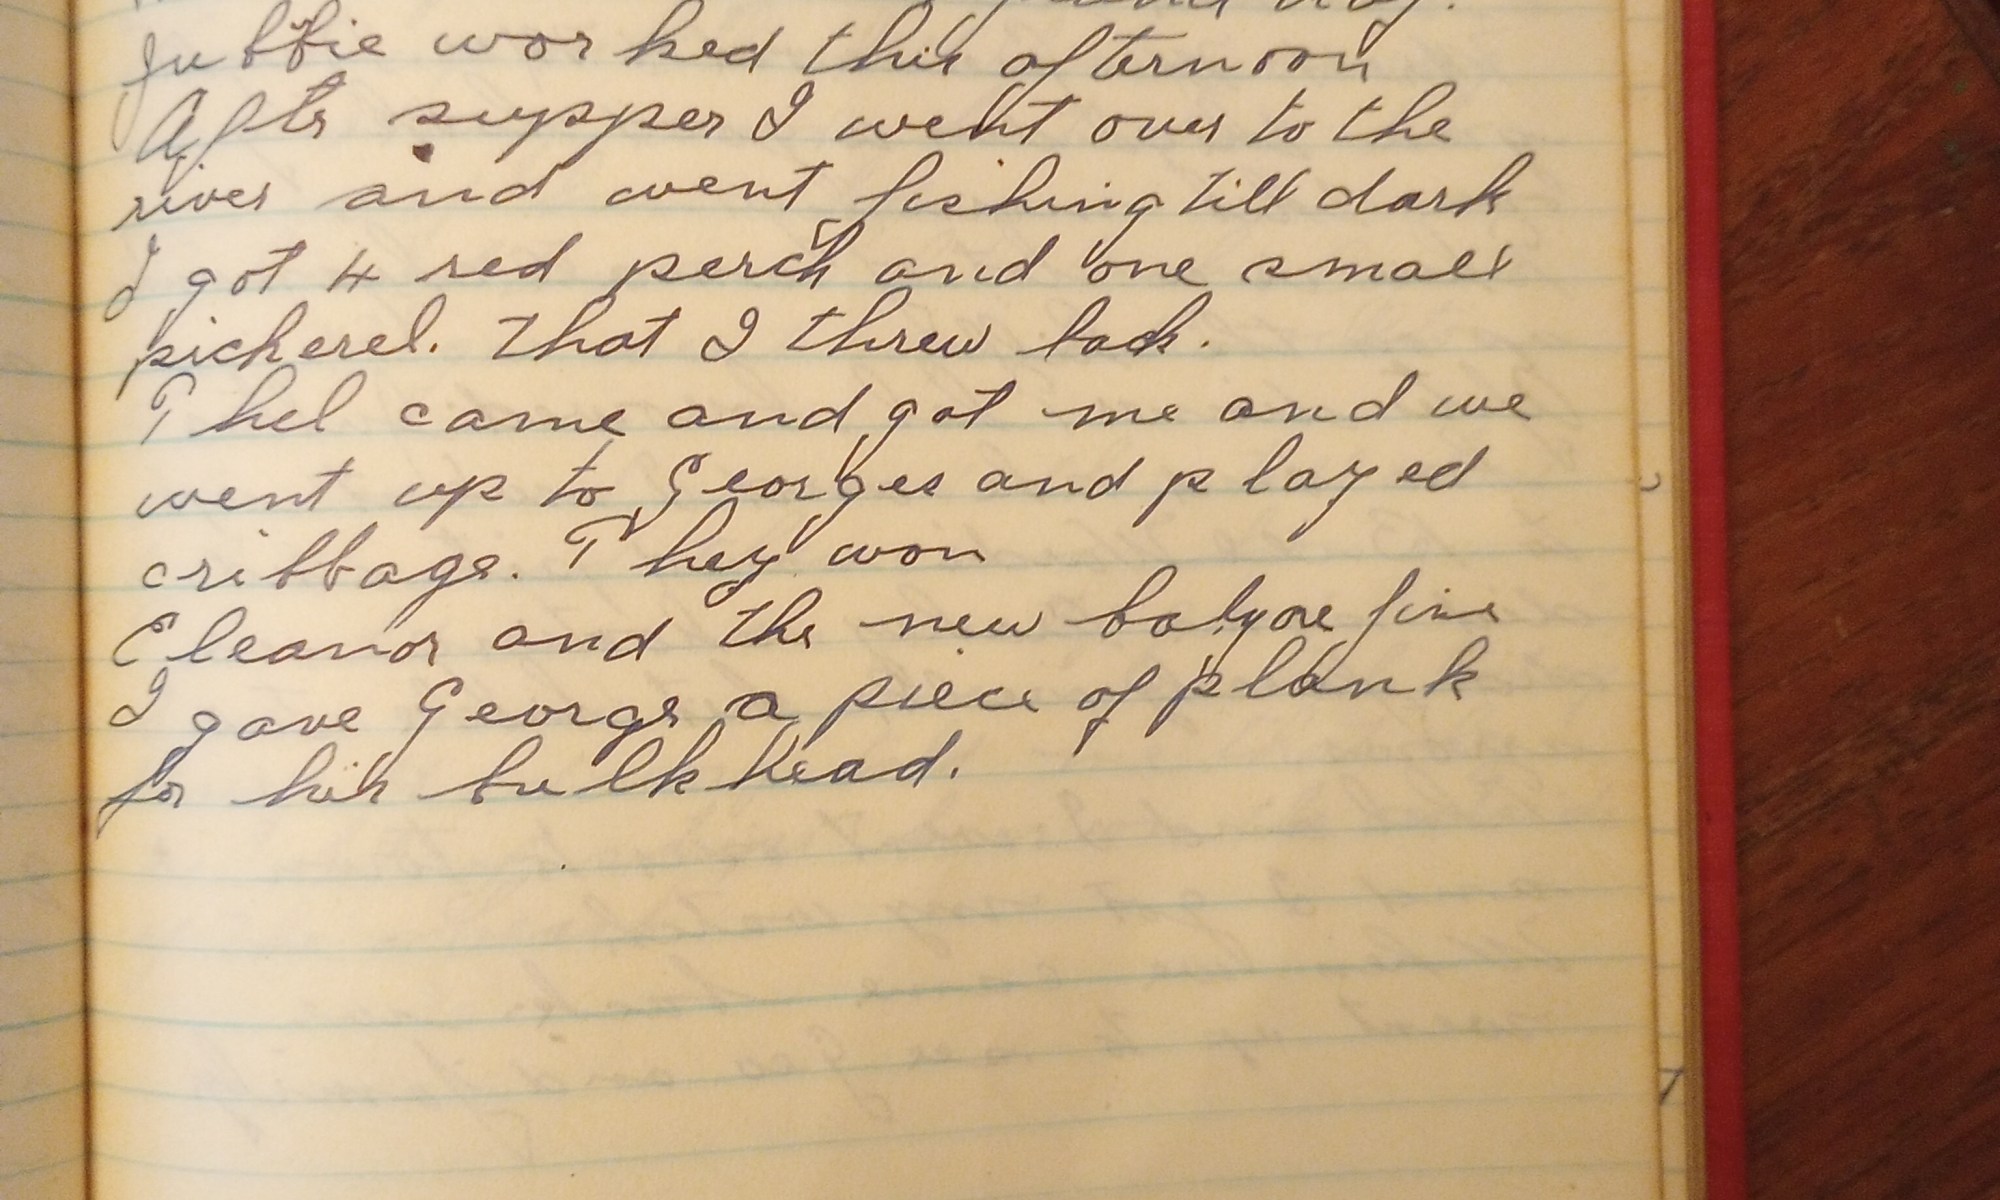 worked this afternoon
After supper I went over to the
river and went fishing till dark
I got 4 red perch and one small
pickerel. that I threw back.
Thel came and got me and we
went up to Georges and played
cribbage. They won
Eleanor and the new baby are fine
I gave George a piece of plank
for his bulkhead.